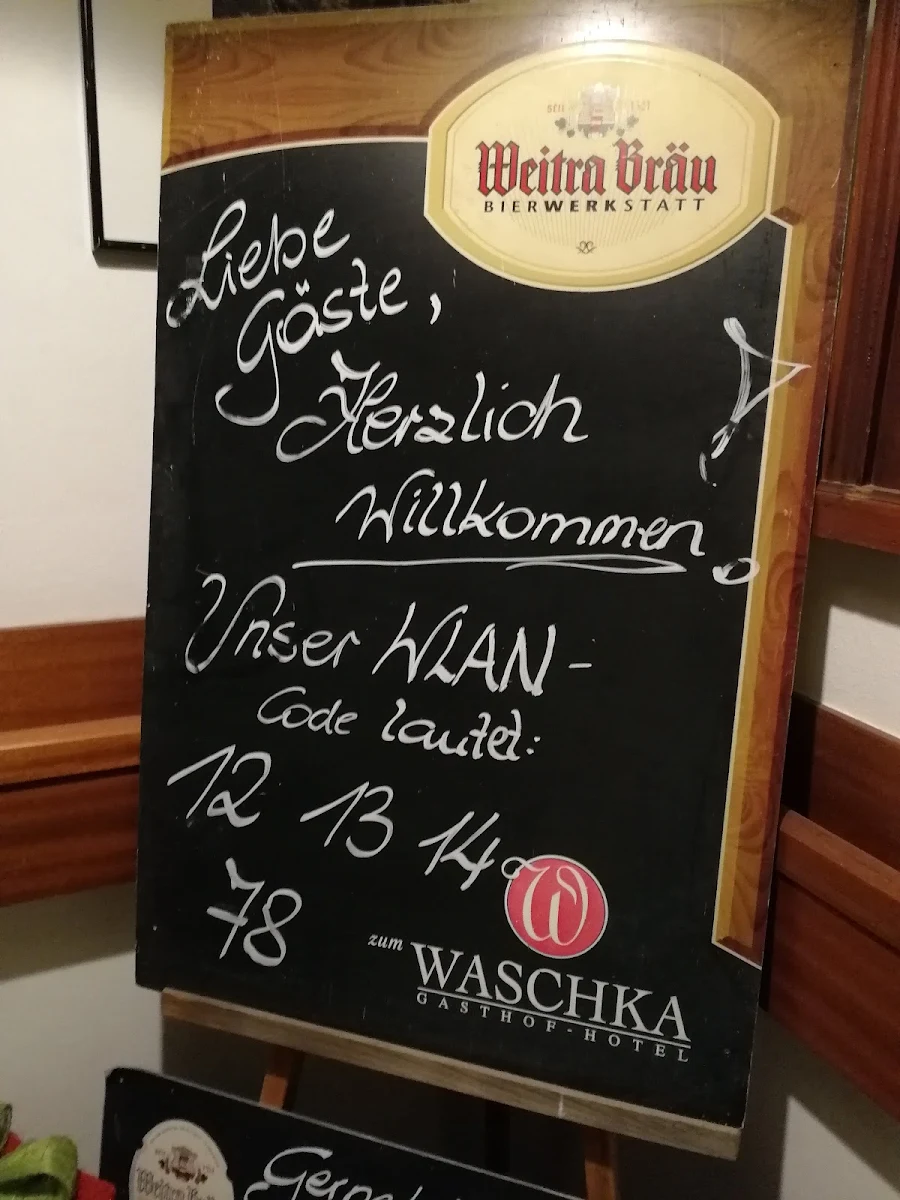 seit 1321
Weitra Bräu
BIERWERKSTATT
Liebe
Gäste,
Herzlich
Willkommen!
Unser WLAN-
Code lautet:
12 13 14
78
W
zum
WASCHKA
GASTHOF-HOTEL
Weitra Bräu